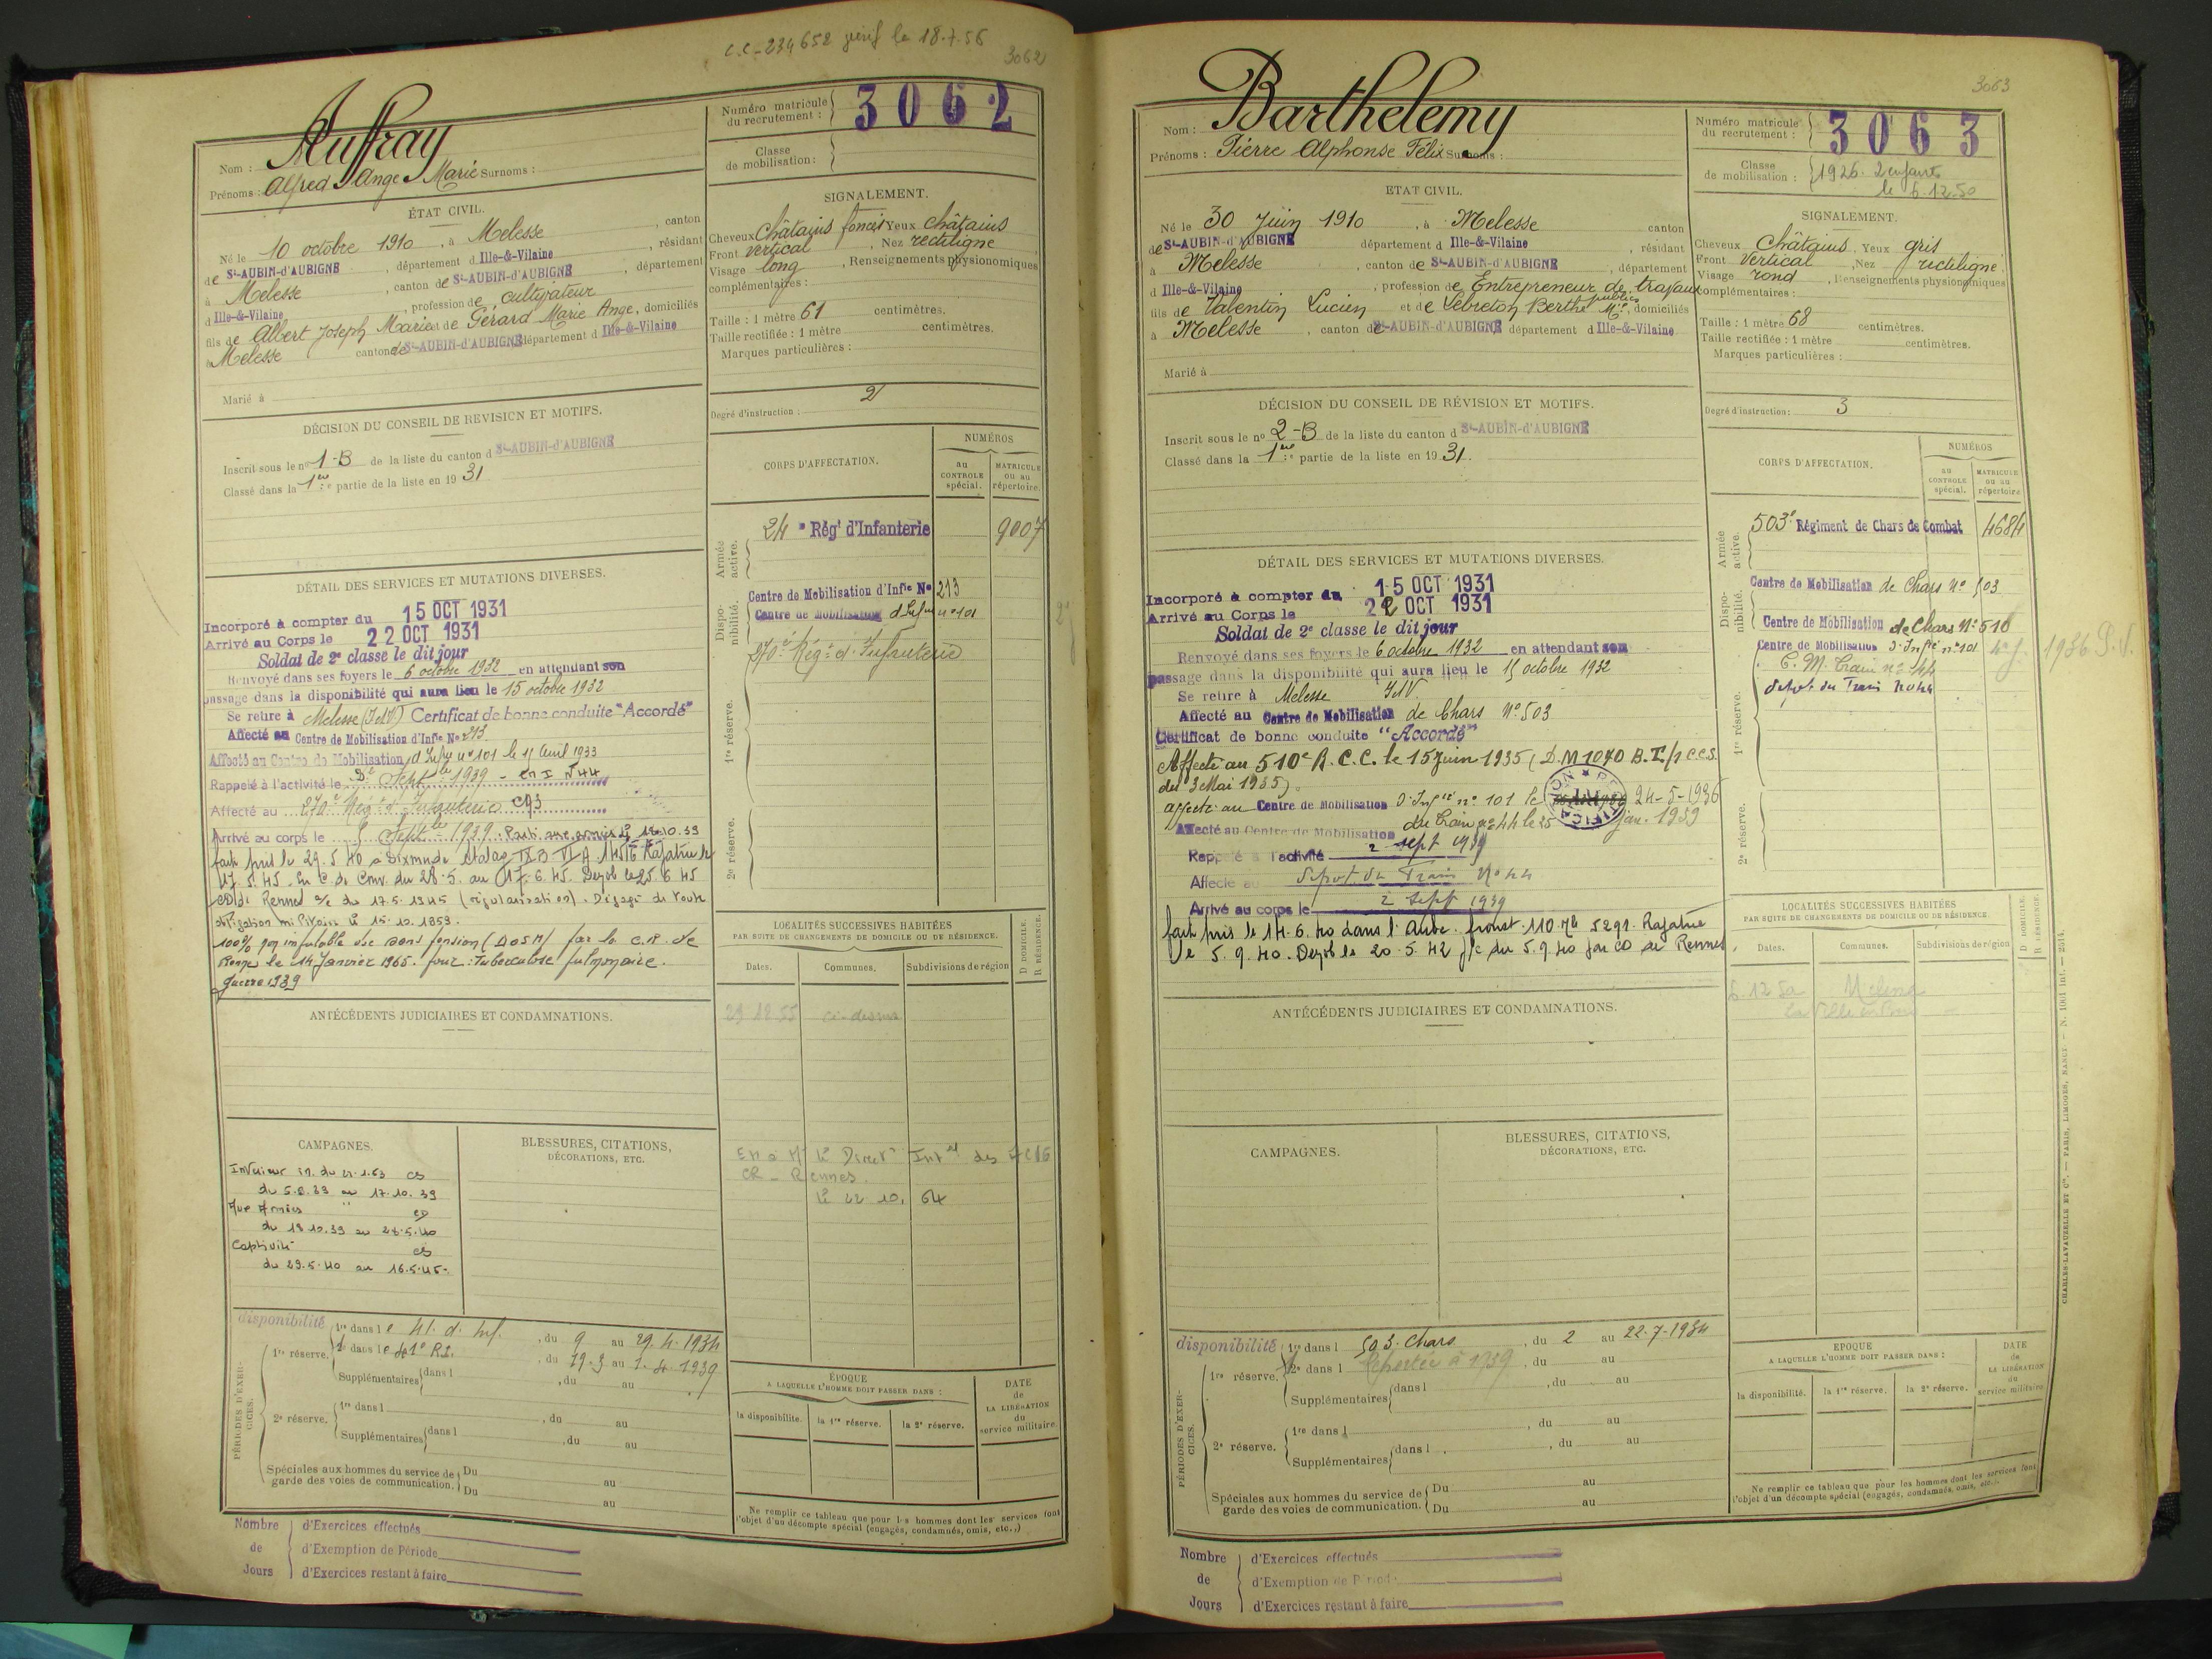 C.C-234652 le 18.7.56
3062
Nom : Auffray
Prénoms : Alfred Ange Marie Surnoms :
Numéro matricule du recrutement : 3062
Classe de mobilisation :
ÉTAT CIVIL.
Né le 10 octobre 1910, à Melesse, canton
de St-AUBIN-d'AUBIGNÉ, département d Ille-&-Vilaine, résidant
à Melesse, canton de St-AUBIN-d'AUBIGNÉ, département
d Ille-&-Vilaine, profession de cultivateur
fils de Albert Joseph Marie et de Gérard Marie Ange, domiciliés
à Melesse canton de St-AUBIN-d'AUBIGNÉ département d Ille-&-Vilaine
Marié à
SIGNALEMENT.
Cheveux Châtains foncés Yeux châtains
Front vertical, Nez rectiligne
Visage long, Renseignements physionomiques
complémentaires :
Taille : 1 mètre 61 centimètres.
Taille rectifiée : 1 mètre centimètres.
Marques particulières :
Degré d'instruction : 2
DÉCISION DU CONSEIL DE RÉVISION ET MOTIFS.
Inscrit sous le n° 1-B de la liste du canton d St-AUBIN-d'AUBIGNÉ
Classé dans la 1re partie de la liste en 1931
CORPS D'AFFECTATION.
NUMÉROS
au CONTROLE spécial.
MATRICULE ou au répertoire.
Armée active.
24e Régt d'Infanterie 9007
Dispo-nibilité.
Centre de Mobilisation d'Infie No 213
Centre de Mobilisation d'Infie n° 101
270e Régt d'Infanterie
1re réserve.
2e réserve.
DÉTAIL DES SERVICES ET MUTATIONS DIVERSES.
Incorporé à compter du 15 OCT 1931
Arrivé au Corps le 22 OCT 1931
Soldat de 2e classe le dit jour
Renvoyé dans ses foyers le 6 octobre 1932 en attendant son
passage dans la disponibilité qui aura lieu le 15 octobre 1932
Se retire à Melesse (I&V) Certificat de bonne conduite "Accordé"
Affecté au Centre de Mobilisation d'Infie No 213.
Affecté au Centre de Mobilisation d'Infie n° 101 le 15 Avril 1933
Rappelé à l'activité le Sept 1939
Affecté au 270e Régt d'Infanterie
Arrivé au corps le 5 Septbre 1939. Parti aux armées le 18.10.39
fait pris le 29.5.40 à Dixmude Stalag IX B VI A Rapatrié le
17.5.45. en C. de Conv. du 28.5. au 17.6.45. Démob le 25.6.45
Rennes a/c du 17.5.1945 (régularisation). Dégagé de toute
obligation militaire le 15.10.1959.
100% non imputable sur sans pension (DOSM) par la C.R. de
Rennes le 14 Janvier 1965. pour : Tuberculose pulmonaire.
guerre 1939
LOCALITÉS SUCCESSIVES HABITÉES
PAR SUITE DE CHANGEMENTS DE DOMICILE OU DE RÉSIDENCE.
D DOMICILE. R RÉSIDENCE.
Dates. Communes. Subdivisions de région
29 12 55 ci-dessus
CR - Rennes.
le 22 10. 64
ANTÉCÉDENTS JUDICIAIRES ET CONDAMNATIONS.
CAMPAGNES.
Intérieur CS
du 5.9.39 au 17.10.39
Aux Armées CD
du 18.10.39 au 28.5.40
Captivité CS
du 29.5.40 au 16.5.45.
BLESSURES, CITATIONS,
DÉCORATIONS, ETC.
PÉRIODES D'EXER-CICES.
disponibilité
1re réserve. 1re dans le 41. d. Inf., du 9 au 29.4.1934
dans le 41e R.I., du 19.3 au 1.4.1939
Supplémentaires dans l, du au
2e réserve. 1re dans l, du au
Supplémentaires dans l, du au
Spéciales aux hommes du service de garde des voies de communication. Du au
Du au
ÉPOQUE
A LAQUELLE L'HOMME DOIT PASSER DANS :
la disponibilité. la 1re réserve. la 2e réserve.
DATE de LA LIBÉRATION du service militaire.
Ne remplir ce tableau que pour les hommes dont les services font
l'objet d'un décompte spécial (engagés, condamnés, omis, etc.,)
Nombre de Jours
d'Exercices effectués
d'Exemption de Période
d'Exercices restant à faire
3063
Nom : Barthelemy
Prénoms : Pierre Alphonse Félix Surnoms :
Numéro matricule du recrutement : 3063
Classe de mobilisation : 1926. 2 enfants
le 6.12.50
ETAT CIVIL.
Né le 30 Juin 1910, à Melesse canton
de St-AUBIN-d'AUBIGNÉ département d Ille-&-Vilaine, résidant
à Melesse, canton de St-AUBIN-d'AUBIGNÉ, département
d Ille-&-Vilaine, profession de Entrepreneur de travaux publics
fils de Valentin Lucien et de Lebreton Berthe Mie, domiciliés
à Melesse, canton de St-AUBIN-d'AUBIGNÉ département d Ille-&-Vilaine.
Marié à
SIGNALEMENT.
Cheveux Châtains, Yeux gris
Front vertical, Nez rectiligne
Visage rond, Renseignements physionomiques
complémentaires :
Taille : 1 mètre 68 centimètres.
Taille rectifiée : 1 mètre centimètres.
Marques particulières :
Degré d'instruction : 3
DÉCISION DU CONSEIL DE RÉVISION ET MOTIFS.
Inscrit sous le n° 2-B de la liste du canton d St-AUBIN-d'AUBIGNÉ
Classé dans la 1re partie de la liste en 1931.
CORPS D'AFFECTATION.
NUMÉROS
au CONTROLE spécial.
MATRICULE ou au répertoire
Armée active.
503e Régiment de Chars de Combat 4684
Dispo-nibilité.
Centre de Mobilisation de Chars n° 503
Centre de Mobilisation de Chars N° 510
Centre de Mobilisation d'Infie n° 101
C. M. Train n° 44
Depot du Train no 44
1936
1re réserve.
2e réserve.
DÉTAIL DES SERVICES ET MUTATIONS DIVERSES.
Incorporé à compter du 15 OCT 1931
Arrivé au Corps le 22 OCT 1931
Soldat de 2e classe le dit jour
Renvoyé dans ses foyers le 6 octobre 1932 en attendant son
passage dans la disponibilité qui aura lieu le 15 octobre 1932
Se retire à Melesse I&V
Affecté au Centre de Mobilisation de Chars N° 503
Certificat de bonne conduite "Accordé"
Affecté au 510e R.C.C. le 15 Juin 1935 (D.M 1070 B.T./1 C.C.S.
du 3 Mai 1935).
affecté au Centre de Mobilisation d'Infie n° 101 le 24-5-1936
Affecté au Centre de Mobilisation du Train n° 44 le 25 Jan. 1939
Rappelé à l'activité 2 sept 1939
Affecté au Depot du Train N° 44
Arrivé au corps le 2 Sept 1939
fait pris le 14.6.40 dans l'Aube. 5291. Rapatrié
le 5.9.40. Démob le 20.5.42 a/c du 5.9.40 par CD de Rennes
LOCALITÉS SUCCESSIVES HABITÉES
PAR SUITE DE CHANGEMENTS DE DOMICILE OU DE RÉSIDENCE.
D DOMICILE. R RÉSIDENCE.
Dates. Communes. Subdivisions de région
6.12.50 Melesse
ANTÉCÉDENTS JUDICIAIRES ET CONDAMNATIONS.
CAMPAGNES.
BLESSURES, CITATIONS,
DÉCORATIONS, ETC.
PÉRIODES D'EXER-CICES.
disponibilité
1re réserve. 1re dans l 503. Chars, du 2 au 22-7-1934
2e dans l Reportée à 1939, du au
Supplémentaires dans l, du au
2e réserve. 1re dans l, du au
Supplémentaires dans l, du au
Spéciales aux hommes du service de garde des voies de communication. Du au
Du au
EPOQUE
A LAQUELLE L'HOMME DOIT PASSER DANS :
la disponibilité. la 1re réserve. la 2e réserve.
DATE de LA LIBÉRATION du service militaire
Ne remplir ce tableau que pour les hommes dont les services font
l'objet d'un décompte spécial (engagés, condamnés, omis, etc.,.
Nombre de Jours
d'Exercices effectués
d'Exemption de Période
d'Exercices restant à faire
CHARLES-LAVAUZELLE ET Cie. — PARIS, LIMOGES, NANCY — N. 1001 Int. — 2514.